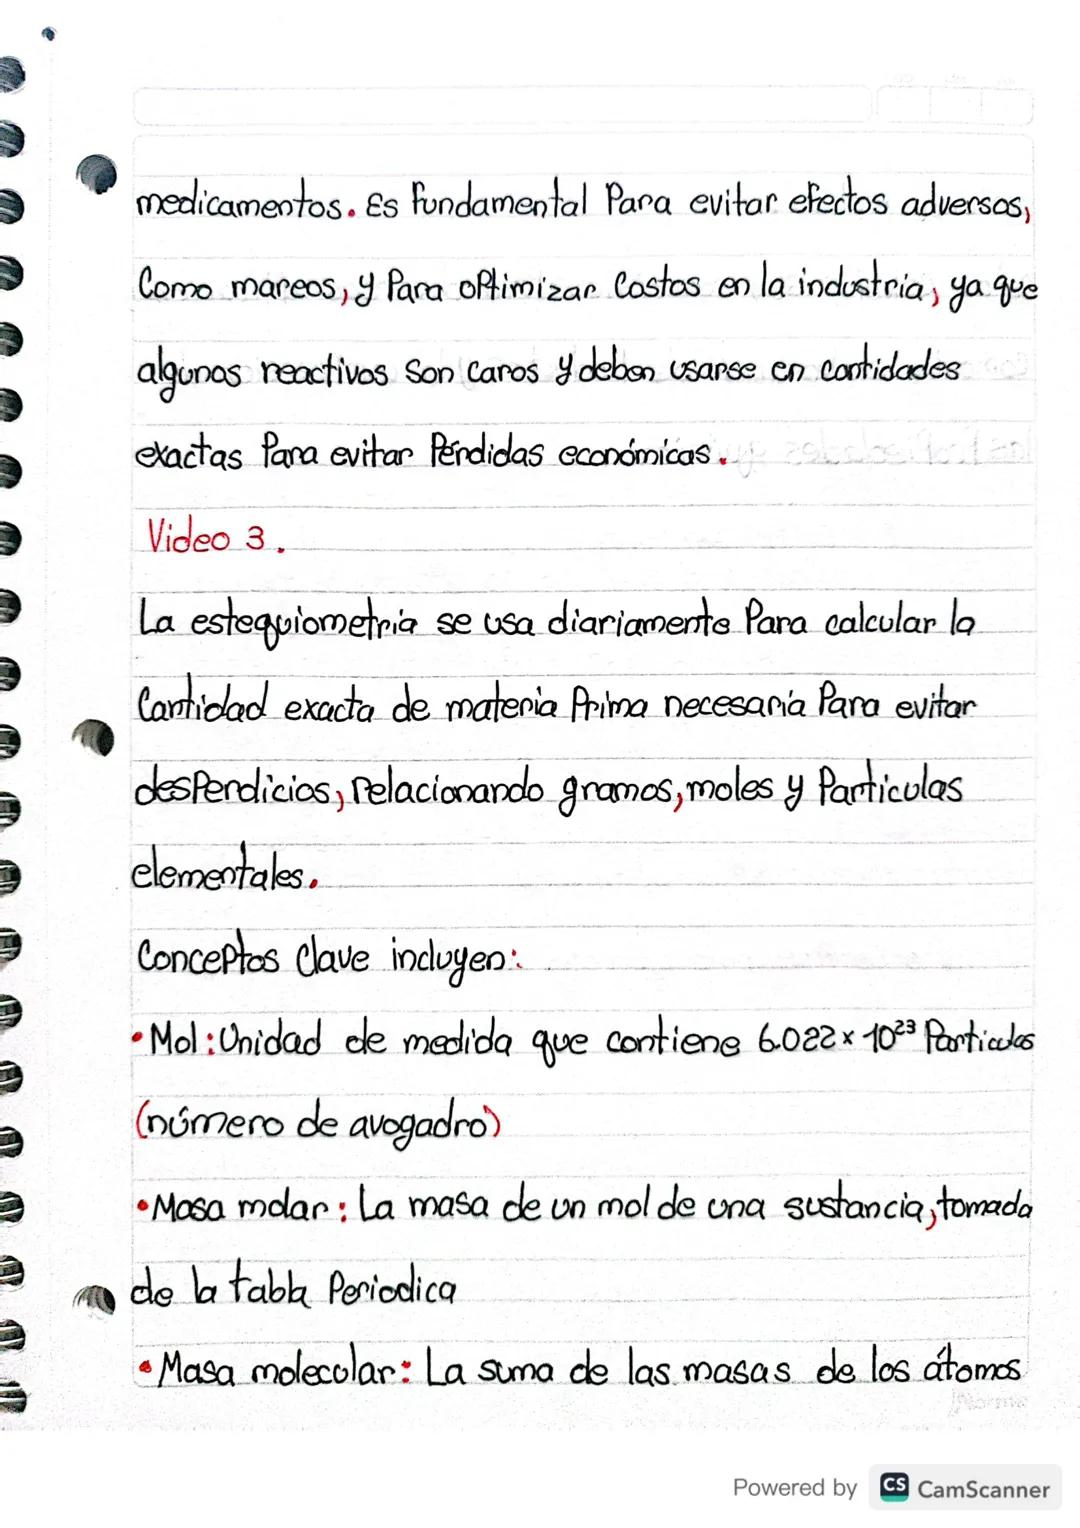 medicamentos. Es fundamental Para evitar efectos adversos,
Como mareos, y Para optimizar Costos en la industria, ya que
algunos reactivos Son Caros y deben usarse en cantidades
exactas Para evitar Pérdidas económicas.
Video 3.
La estequiometría se usa diariamente Para calcular la
Cantidad exacta de materia Prima necesaria Para evitar
desPerdicios, relacionando gramos, moles y Particulas
elementales.
Conceptos Clave incluyen:
•Mol: Unidad de medida que contiene 6.022 x 10²³ Particulas
(número de avogadro)
•Masa molar: La masa de un mol de una sustancia, tomada
de la tabla Periodica
•Masa molecular: La suma de las masas de los átomos
Norma
Powered by CS CamScanner